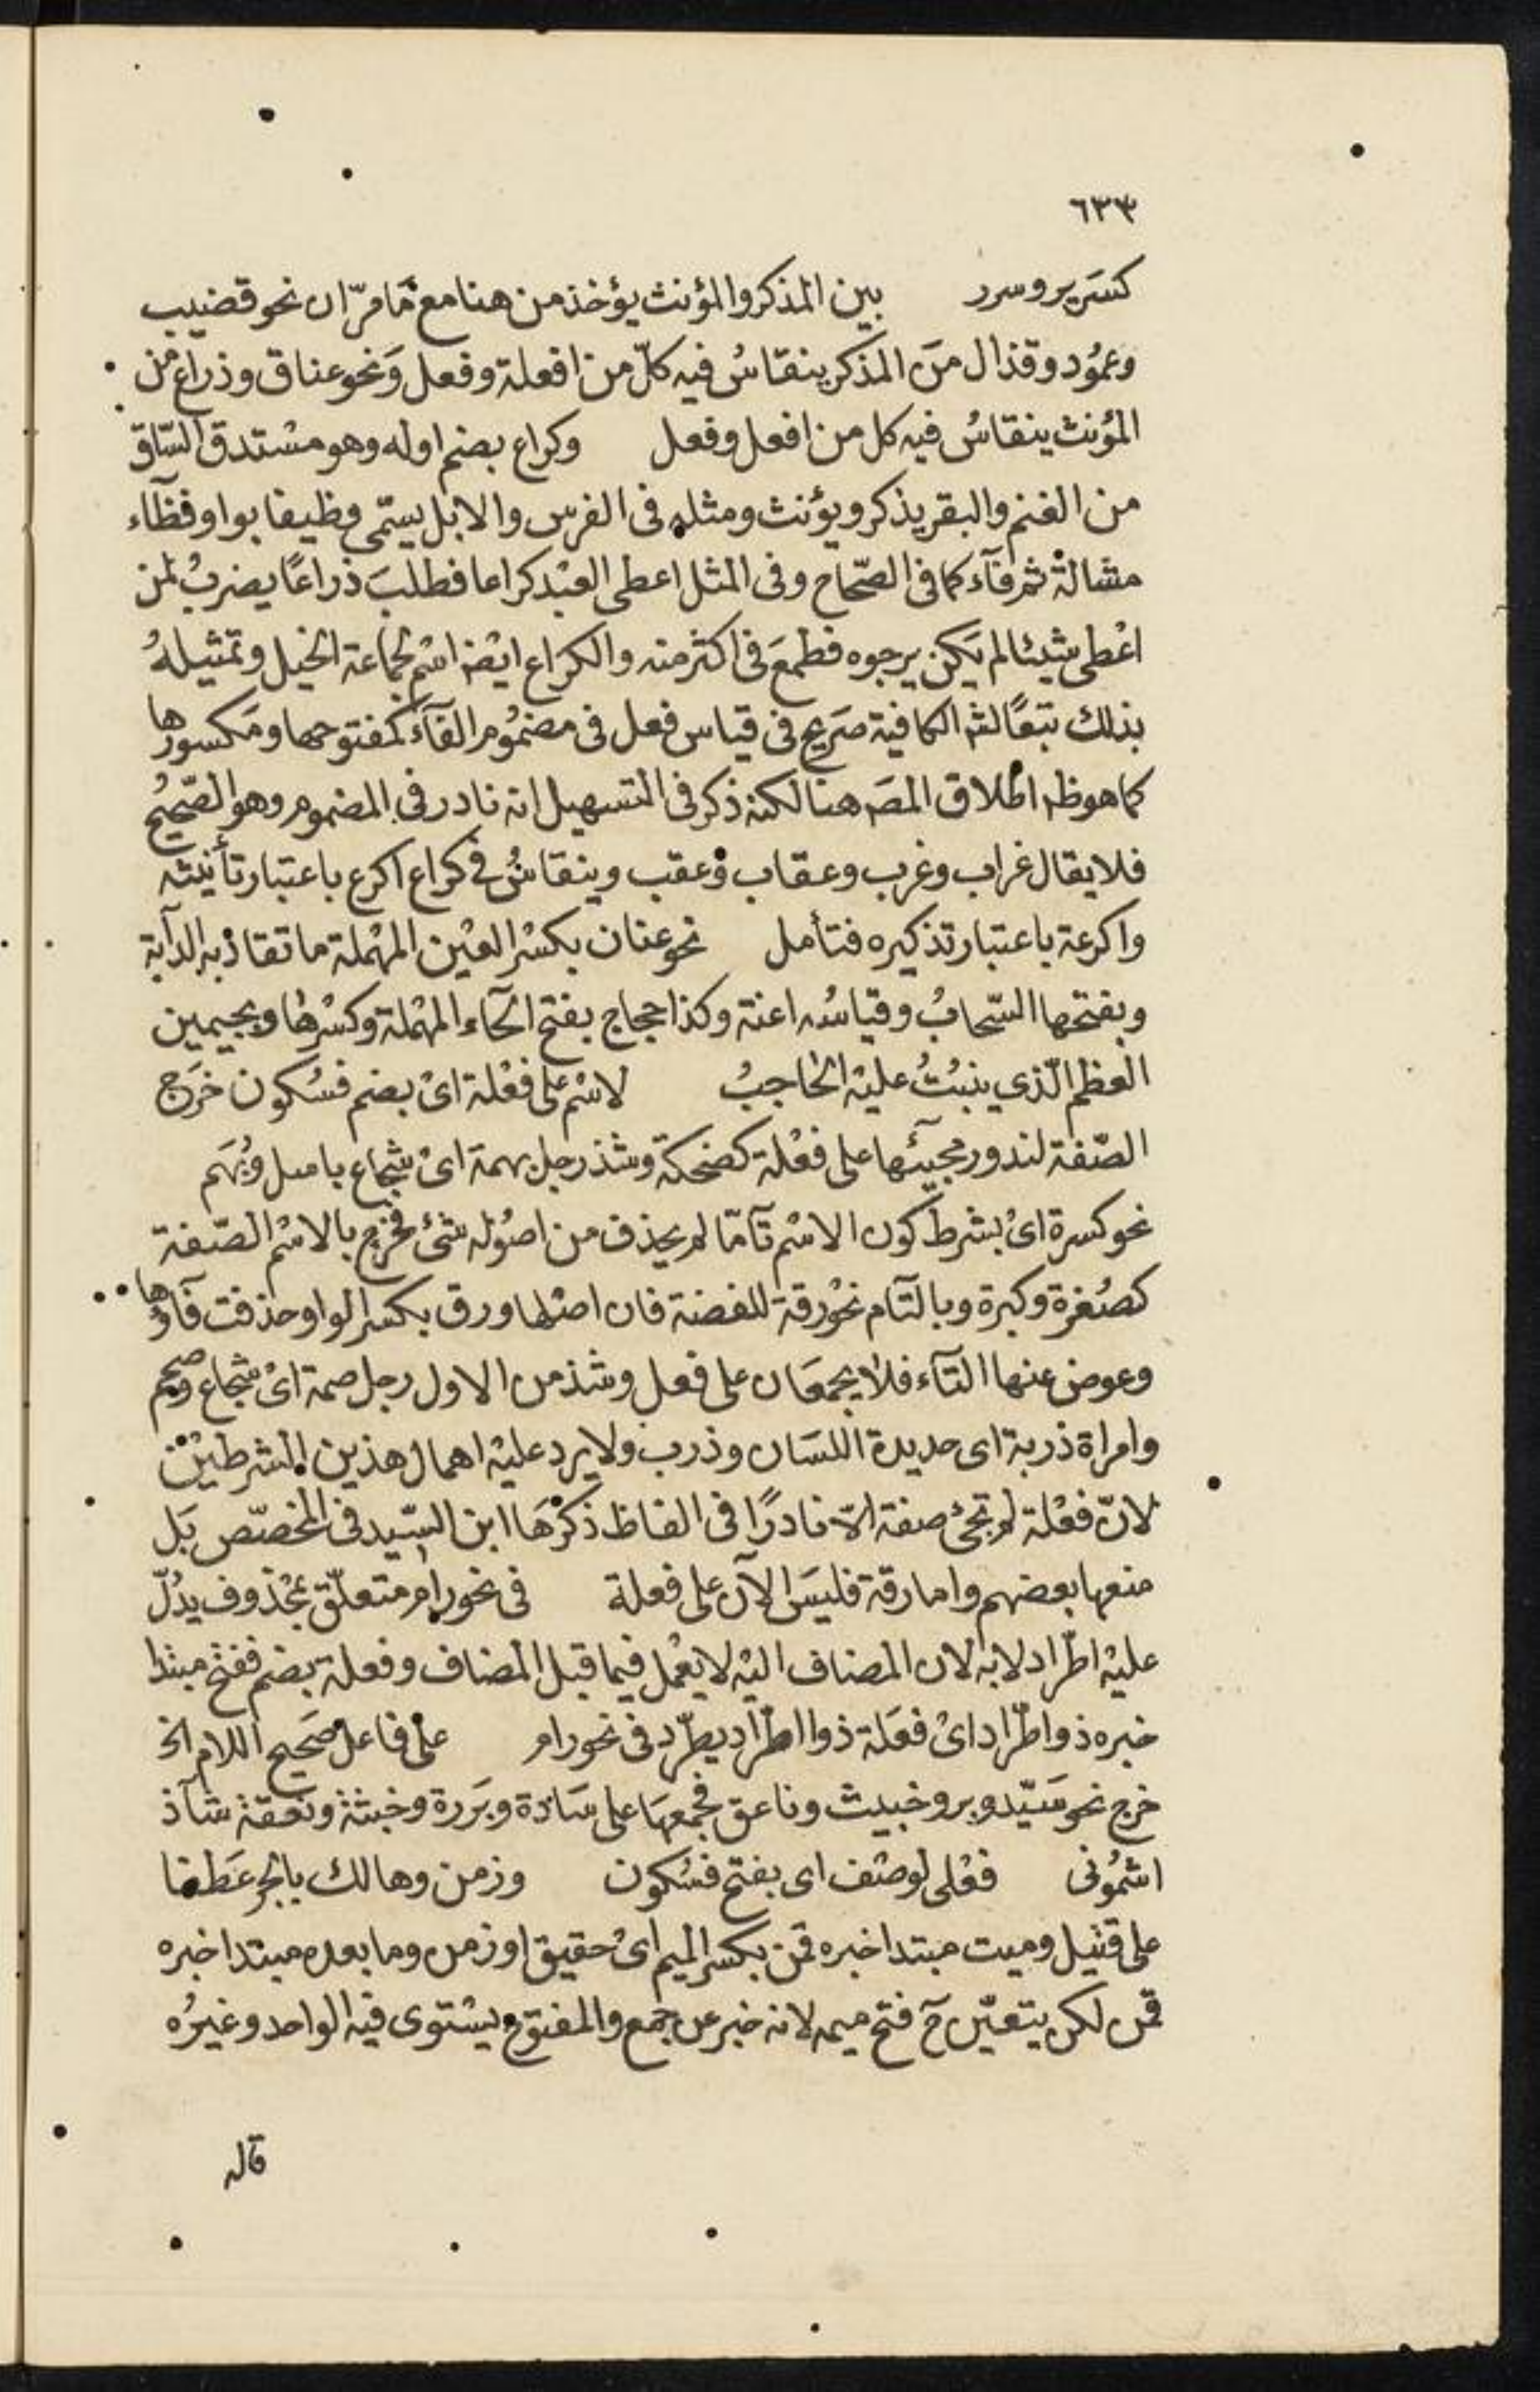 ٦٣٣
كسَرير وسرر بين المذكر والمؤنث يؤخذ من هنا مع مَا مرّ ان نحو قضيب
وعمُود وقذال منَ المذكر ينقاسُ فيه كلّ من افعلة وفعل وَنحو عناق وذراع من
المؤنث ينقاسُ فيه كل من افعل وفعل وكراع بضم اوله وهو مسْتدق السّاق
من الغنم والبقر يذكر ويؤنث ومثله فى الفرس والابل يسمّى وظيفا بواو فظآء
مشالةْ ثم فآء كما فى الصّحاح وفى المثل اعطى العبْد كراعا فطلبَ ذراعًا يضربُ لمن
اعْطى شيئا لم يَكن يرجوه فطمعَ فى اكثر منه والكراع ايضْا اسْم لجماعة الخيل وتمثيلهُ
بذلك تبعًا لشرالكافية صَريح فى قياس فعل فى مضمُوم الفآء كمفتوحها ومَكسورها
كما هو ظه اطلاق المصَه هنا لكنه ذكر فى التسهيل انه نادر فى المضموم وهو الصّحيحُ
فلا يقال غراب وغرب وعقاب وْعقب وينقاسُ فى كراع اكرع باعتبار تأنيثه
واكرعة باعتبار تذكيره فتأمل نحو عنان بكسْر العيْن المهْملة ما تقاد به الدآبة
وبفتحها السّحابُ وقياسُه اعنة وكذا حجاج بفتح الحآء المهْملة وكسْرها وبجيمين
العظم الّذي ينبُتُ عليْه الحاجبُ لاسْم على فعْلة اىْ بضم فسُكون خرَج
الصّفة لندور مجيئها على فعْلة كضحكة وشذ رجل بهمة اىْ شجاع باسل وبُهَم
نحو كسرة اىْ بشرط كون الاسْم تآمّا لم يحذف من اصُوله شئ فخرج بالاسْم الصّفة
كصُغرة وكبرة وبالتآم نحْو رقة للفضة فان اصْلها ورق بكسر الواو حذفت فآؤها
وعوض عنها التآء فلا يجمعَان على فعل وشذ من الاول رجل صمة اىْ شجاع وصمم
وامراة ذربة اى حديدة اللسَان وذرب ولا يرد عليْه اهمال هذين الشرطيْن
لانّ فعْلة لم تجئ صفة الاّ نادرًا فى الفاظ ذكرْهَا ابن السّيد فى المخصّص بَل
منعها بعضهم واما رقة فليسَ الآن على فعلة فى نحو رام متعلّق بمحْذوف يدُلّ
عليْه اطّراد لا به لان المضاف اليْه لا يعْمل فيما قبل المضاف وفعلة بضم ففتح مبتدا
خبره ذو اطّراد اىْ فعَلة ذو اطّراد يطّرد فى نحو رام على فاعل صَحيح اللام الخ
خرج نحو سَيّد وبر وخبيث وناعق فجمعهَا على سَادة وبَررة وخبثة ونعقة شآذ
اشمُونى فعْلى لوصْف اى بفتح فسُكون وزمن وهالك بالجر عَطفا
على قتيل وميت مبتدا خبره قمن بكسْر الميم اىْ حقيق او زمن وما بعده مبتدا خبره
قمن لكن يتعيّن ح فتح ميمه لانه خبر عن جمع والمفتوح يسْتوى فيْه الواحد وغيرُه
قاله